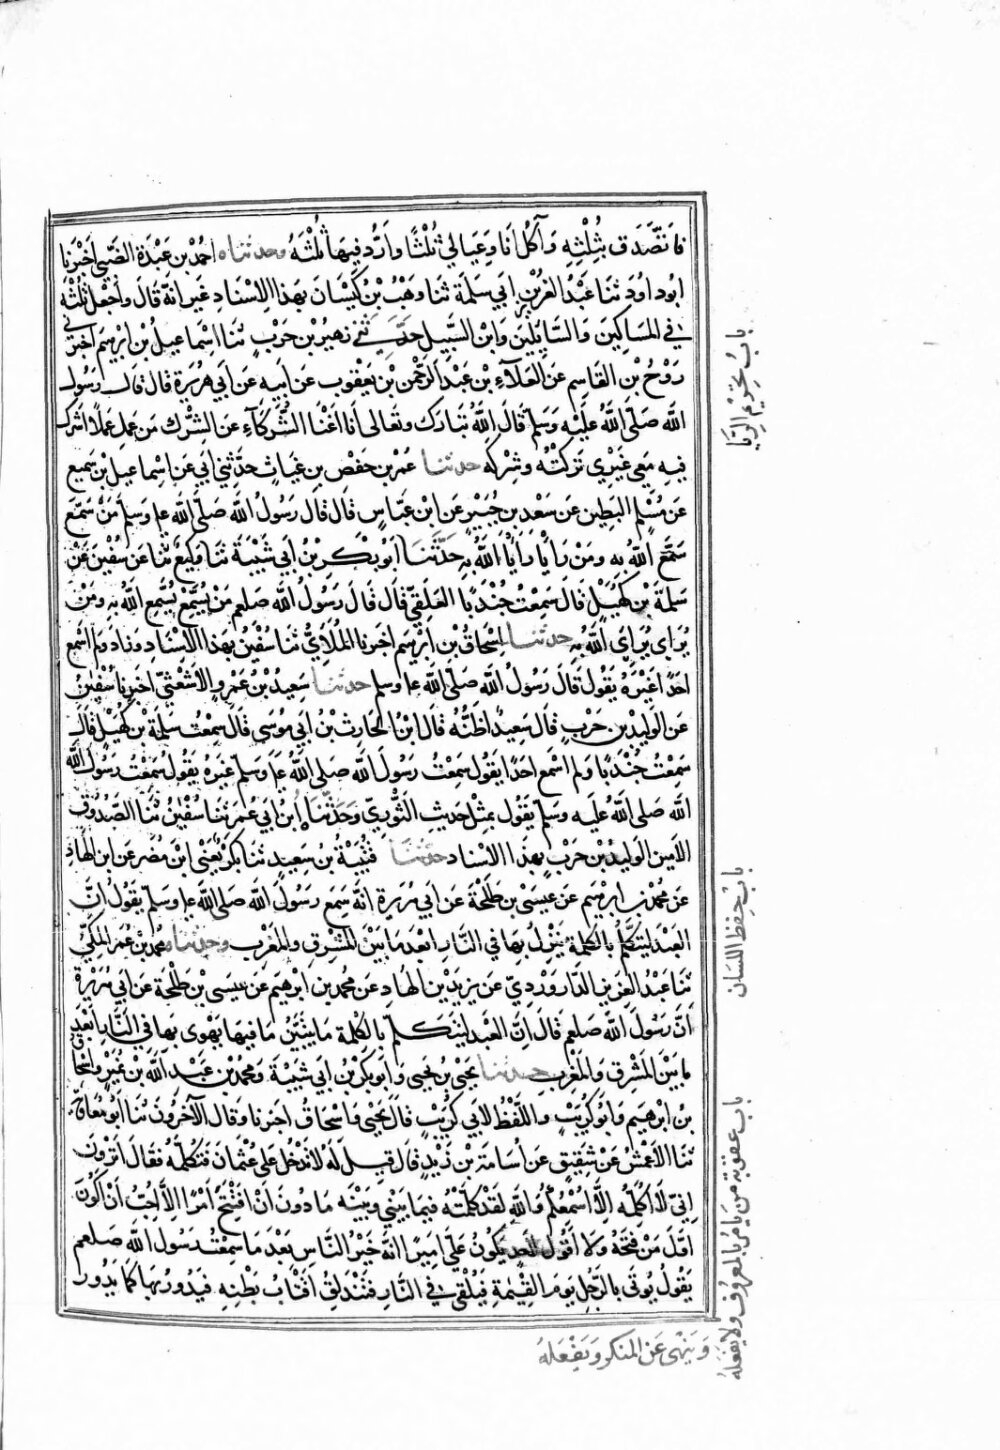 فاتصدق بثلثه وآكل انا وعيالي ثلثا وارد فيها ثلثه وحدثناه احمد بن عبدة الضبي اخبرنا
ابو داود ثنا عبد العزيز بن ابي سلمة ثنا وهب بن كيسان بهذا الاسناد غير انه قال واجعل ثلثه
في المساكين والسايلين وابن السبيل حدثني زهير بن حرب ثنا اسماعيل بن ابرهيم اخبرني
روح بن القاسم عن العلاء بن عبد الرحمن بن يعقوب عن ابيه عن ابي هريرة قال قال رسول
الله صلى الله عليه وسلم قال الله تبارك وتعالى انا اغنا الشركاء عن الشرك من عمل عملا اشرك
فيه معي غيري تركته وشركه حدثنا عمر بن حفص بن غياث حدثني ابي عن اسماعيل بن سميع
عن مسلم البطين عن سعيد بن جبير عن ابن عباس قال قال رسول الله صلى الله عليه وسلم من سمع
سمع الله به ومن رأيا رأيا الله به حدثنا ابو بكر بن ابي شيبة ثنا وكيع ثنا عن سفين عن
سلمة بن كهيل قال سمعت جندبا العلقي قال قال رسول الله صلعم من يسمع يسمع الله به ومن
يراي يراي الله به حدثنا اسحاق بن ابرهيم اخبرنا الملايي ثنا سفين بهذا الاسناد وزاد ولم اسمع
احدا غيره يقول قال رسول الله صلى الله عليه وسلم حدثنا سعيد بن عمرو الاشعثي اخبرنا سفين
عن الوليد بن حرب قال سعيد اظنه قال ابن الحارث بن ابي موسى قال سمعت سلمة بن كهيل قال
سمعت جندبا ولم اسمع احدا يقول سمعت رسول الله صلى الله عليه وسلم غيره يقول سمعت رسول الله
الله صلى الله عليه وسلم يقول بمثل حديث الثوري وحدثناه ابن ابي عمر ثنا سفين ثنا الصدوق
الامين الوليد بن حرب بهذا الاسناد حدثنا قتيبة بن سعيد ثنا بكر يعني ابن مضر عن ابن الهاد
عن محمد بن ابرهيم عن عيسى بن طلحة عن ابي هريرة انه سمع رسول الله صلى الله عليه وسلم يقول ان
العبد ليتكلم بالكلمة ينزل بها في النار ابعد ما بين المشرق والمغرب وحدثناه محمد بن عمر المكي
ثنا عبد العزيز الدراوردي عن يزيد بن الهاد عن محمد بن ابرهيم عن عيسى بن طلحة عن ابي هريرة
ان رسول الله صلعم قال ان العبد ليتكلم بالكلمة ما يتبين ما فيها يهوى بها في النار ابعد
ما بين المشرق والمغرب حدثنا يحيى بن يحيى وابو بكر بن ابي شيبة ومحمد بن عبد الله بن نمير واسحاق
بن ابرهيم وابو كريب واللفظ لابي كريب قال يحيى واسحاق اخبرنا وقال الآخرون ثنا ابو معاوية
ثنا الاعمش عن شقيق عن اسامة بن زيد قال قيل له لا تدخل على عثمان فتكلمه فقال اترون
اني لا اكلمه الا اسمعكم والله لقد كلمته فيما بيني وبينه ما دون ان افتتح امرا لا احب ان اكون
اول من فتحه ولا اقول لاحد يكون علي اميرا انه خير الناس بعد ما سمعت رسول الله صلعم
يقول يوتى بالرجل يوم القيمة فيلقى في النار فتندلق اقتاب بطنه فيدور بها كما يدور
باب تحريم الريا
باب حفظ اللسان
باب عقوبة من يامر بالمعروف ولا يفعله
وينهى عن المنكر ويفعله